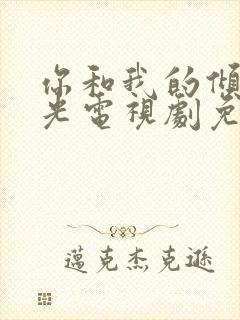 你和我的傾
光電視劇免
邁克杰克遜